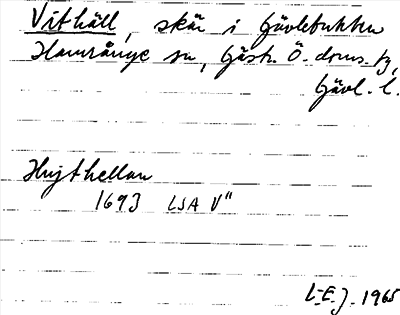 Vithäll, skär i Gävlebukten
Hamrånge sn, Gästr. Ö. doms. tg,
Gävl. l.
Hvjthellan
1693 LSA V"
L-E. J. 1965